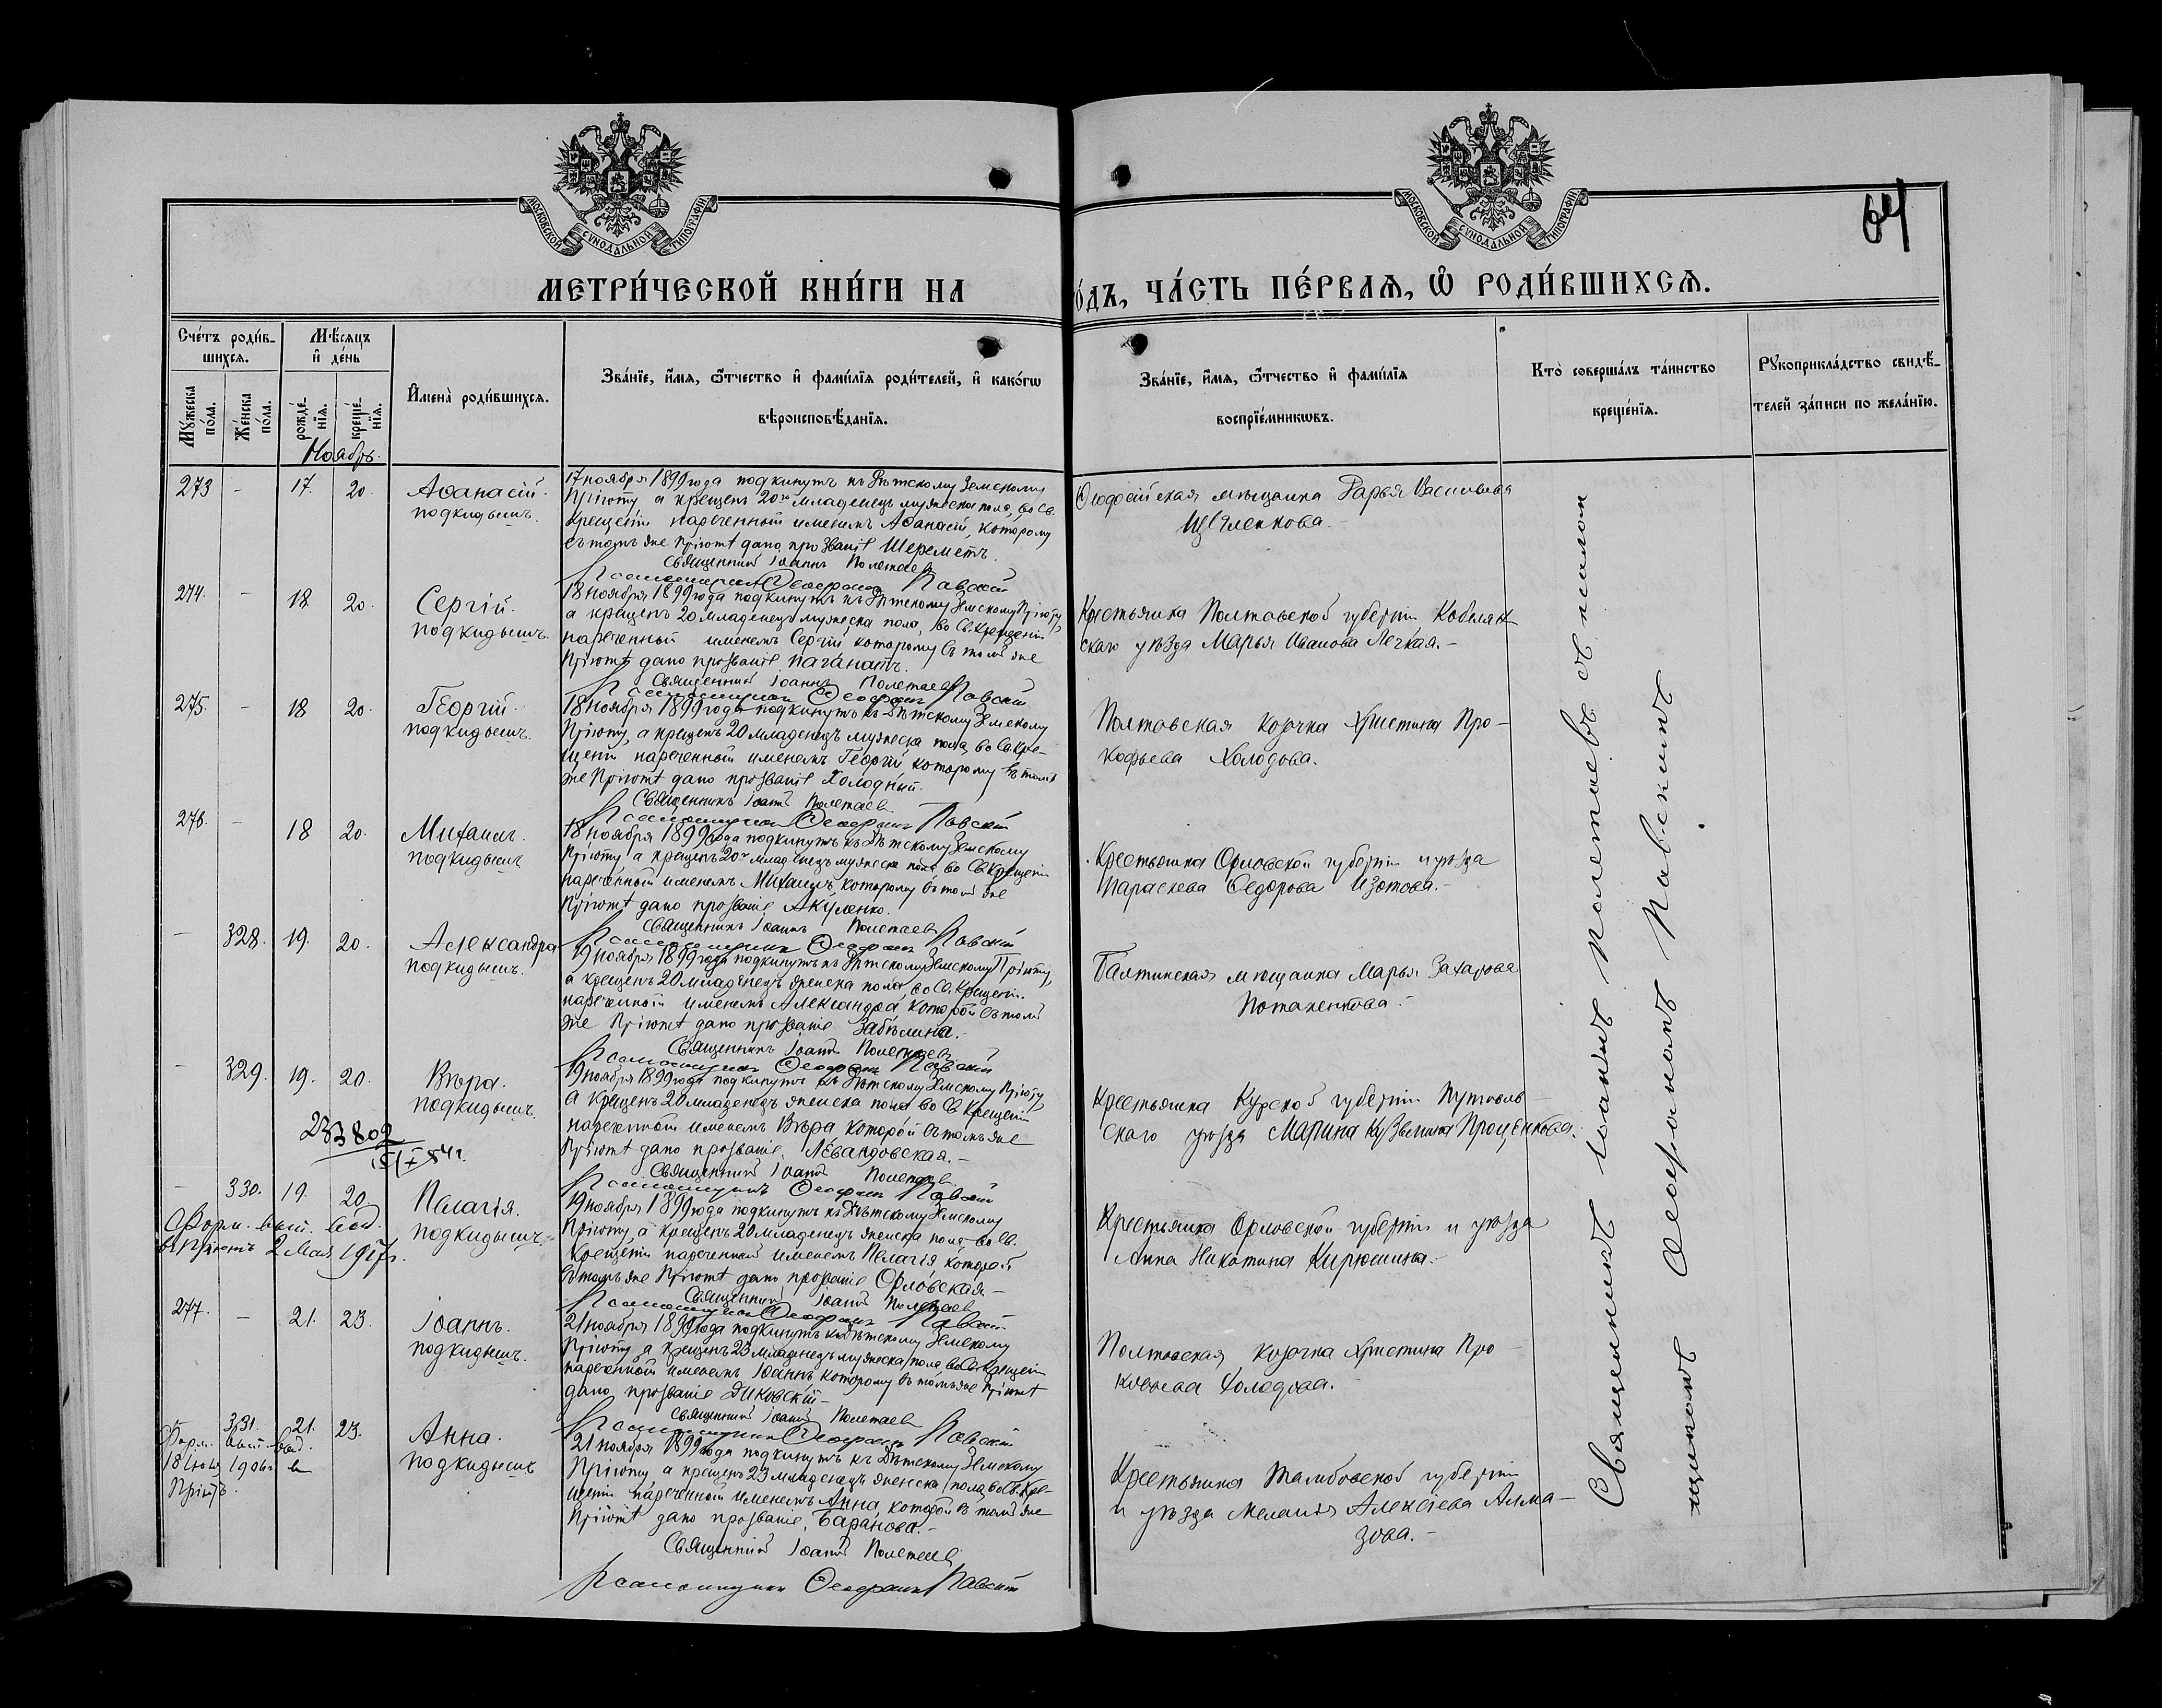 МОСКОВСКОЙ СѴНОДАЛЬНОЙ ТИПОГРАФІИ
МОСКОВСКОЙ СѴНОДАЛЬНОЙ ТИПОГРАФІИ
64
МЕТРИ́ЧЕСКОЙ КНИ́ГИ НА
О́ДЪ, ЧА́СТЬ ПЕ́РВАЯ, Ѡ҆ РОДИ́ВШИХСЯ.
Сче́тъ роди́в-
шихся.
Мѣ́сяцъ
и҆ де́нь
Мꙋ́жеска
по́ла.
Же́нска
по́ла.
рожде́-
нїя.
креще́-
нїя.
И҆мена̀ роди́вшихся.
Зва́нїе, и҆́мя, ѻ҆́тчество и҆ фами́лїя роди́телей, и҆ како́гѡ
вѣроисповѣ́данїя.
Зва́нїе, и҆́мя, ѻ҆́тчество и҆ фами́лїя
воспрїе́мникѡвъ.
Кто̀ соверша́лъ та́инство
креще́нїя.
Рꙋкоприкла́дство свидѣ́-
телей за́писи по жела́нїю.
Ноябрь.
273 - 17. 20. Аѳанасій.
подкидышъ.
17 ноября 1899 года подкинутъ къ Дѣтскому Земскому
Пріюту а крещенъ 20го младенецъ мужеска пола, во Св.
Крещеніи нареченный именемъ Аѳанасій, которому
въ томъ же Пріютѣ дано прозваніе Шереметъ.
Священникъ Іоаннъ Полетаев
Псаломщикъ Ѳеофанъ Павскій
Ѳеодосійская мѣщанка Дарья Васильева
274. - 18 20. Сергій.
подкидышъ.
18 ноября 1899 года подкинутъ къ Дѣтскому Земскому Пріюту
а крещенъ 20 младенецъ мужеска пола, во Св. Крещеніи
нареченный именемъ Сергій которому въ томъ же
Пріютѣ дано прозваніе Паганатъ.
Священникъ Іоаннъ Полетаевъ
Псаломщикъ Ѳеофанъ Павскій
Крестьянка Полтавской губерніи Кобеляк
скаго уѣзда Марья Иванова Легкая.-
275. - 18 20. Георгій.
подкидышъ.
18 ноября 1899 года подкинутъ къ Дѣтскому Земскому
Пріюту, а крещенъ 20 младенецъ мужеска пола, во Св. Кре-
щеніи нареченный именемъ Георгій которому въ томъ
же Пріютѣ дано прозваніе Холодный.
Священникъ Іоаннъ Полетаев
Псаломщикъ Ѳеофанъ Павскій
Полтавская козачка Христина Про-
кофьева Холодова.
276. - 18 20. Михаилъ.
подкидышъ
18 ноября 1899 года подкинутъ къ Дѣтскому Земскому
Пріюту а крещенъ 20го младенецъ мужеска пола, во Св. Крещеніи
нареченный именемъ Михаилъ, которому въ томъ же
Пріютѣ дано прозваніе Акуленко.
Священникъ Іоаннъ Полетаевъ
Псаломщикъ Ѳеофанъ Павскій
Крестьянка Орловской губерніи и уѣзда
Параскева Ѳедорова Изотова.-
- 328. 19. 20. Александра
подкидышъ.
19 ноября 1899 года подкинутъ къ Дѣтскому Земскому Пріюту,
а крещенъ 20 младенецъ женска пола, во Св. Крещеніи
нареченный именемъ Александра, которой въ томъ
же Пріютѣ дано прозваніе Забѣлина.
Священникъ Іоаннъ Полетаевъ
Псаломщикъ Ѳеофанъ Павскій
Балтинская мѣщанка Марья Захарова
Потапенкова.-
- 329. 19. 20. Вѣра.
подкидышъ.
19 ноября 1899 года подкинутъ къ Дѣтскому Земскому Пріюту
а крещенъ 20 младенецъ женска пола во Св. Крещеніи
нареченный именемъ Вѣра которой въ томъ же
Пріютѣ дано прозваніе Левандовская.-
Священникъ Іоаннъ Полетаев
Псаломщикъ Ѳеофанъ Павскій
Крестьянка Курской губерніи Путивль-
скаго уѣзда Марина Кузьмина Проценкова.
- 330. 19. 20. Пелагія.
подкидышъ.
Форм. вып. выд.
въ Пріютъ 2 Мая 1917г.
19 ноября 1899 года подкинутъ къ Дѣтскому Земскому
Пріюту, а крещенъ 20 младенецъ женска пола во Св.
Крещеніи нареченный именемъ Пелагія, которой
въ томъ же Пріютѣ дано прозваніе Орловская-
Священникъ Іоаннъ Полетаев
Псаломщикъ Ѳеофанъ Павскій
Крестьянка Орловской губерніи и уѣзда
Анна Никитина Кирюшина.-
277. - 21. 23. Іоаннъ.
подкидышъ.
21 ноября 1899 года подкинутъ къ Дѣтскому Земскому
Пріюту, а крещенъ 23 младенецъ мужеска пола, во Св. Крещеніи
нареченный именемъ Іоаннъ которому въ томъ же Пріютѣ
дано прозваніе Диковскій-
Священникъ Іоаннъ Полетаев
Псаломщикъ Ѳеофанъ Павскій
Полтавская козачка Христина Про-
кофьева Холодова.
331. 21. 23. Анна.
подкидышъ
Форм. вып. выд.
Пріютъ.
21 ноября 1899 года подкинутъ къ Дѣтскому Земскому
Пріюту, а крещенъ 23 младенецъ женска пола, во Св. Кре-
щеніи нареченный именемъ Анна, которой въ томъ же
Пріютѣ дано прозваніе Баранова.-
Священникъ Іоаннъ Полетаев
Псаломщикъ Ѳеофанъ Павскій
Крестьянка Тамбовской губерніи
и уѣзда Меланія Алексѣева Алма-
зова.-
Священникъ Іоаннъ Полетаевъ съ псалом
щикомъ Ѳеофаномъ Павскимъ